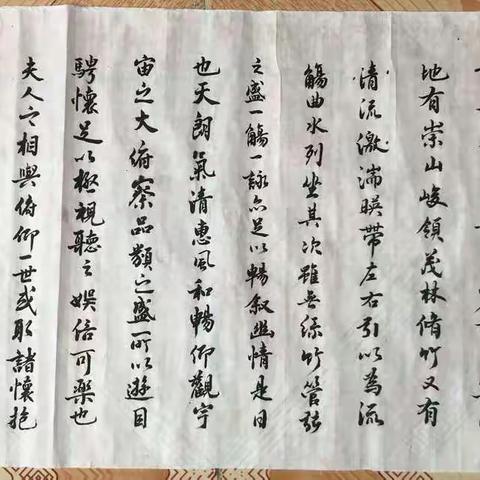 地有崇山峻領茂林脩竹又有
清流激湍暎帶左右引以為流
觴曲水列坐其次雖無絲竹管弦
之盛一觴一詠亦足以暢叙幽情是日
也天朗氣清惠風和暢仰觀宇
宙之大俯察品類之盛所以遊目
騁懷足以極視聽之娛信可樂也
夫人之相與俯仰一世或取諸懷抱